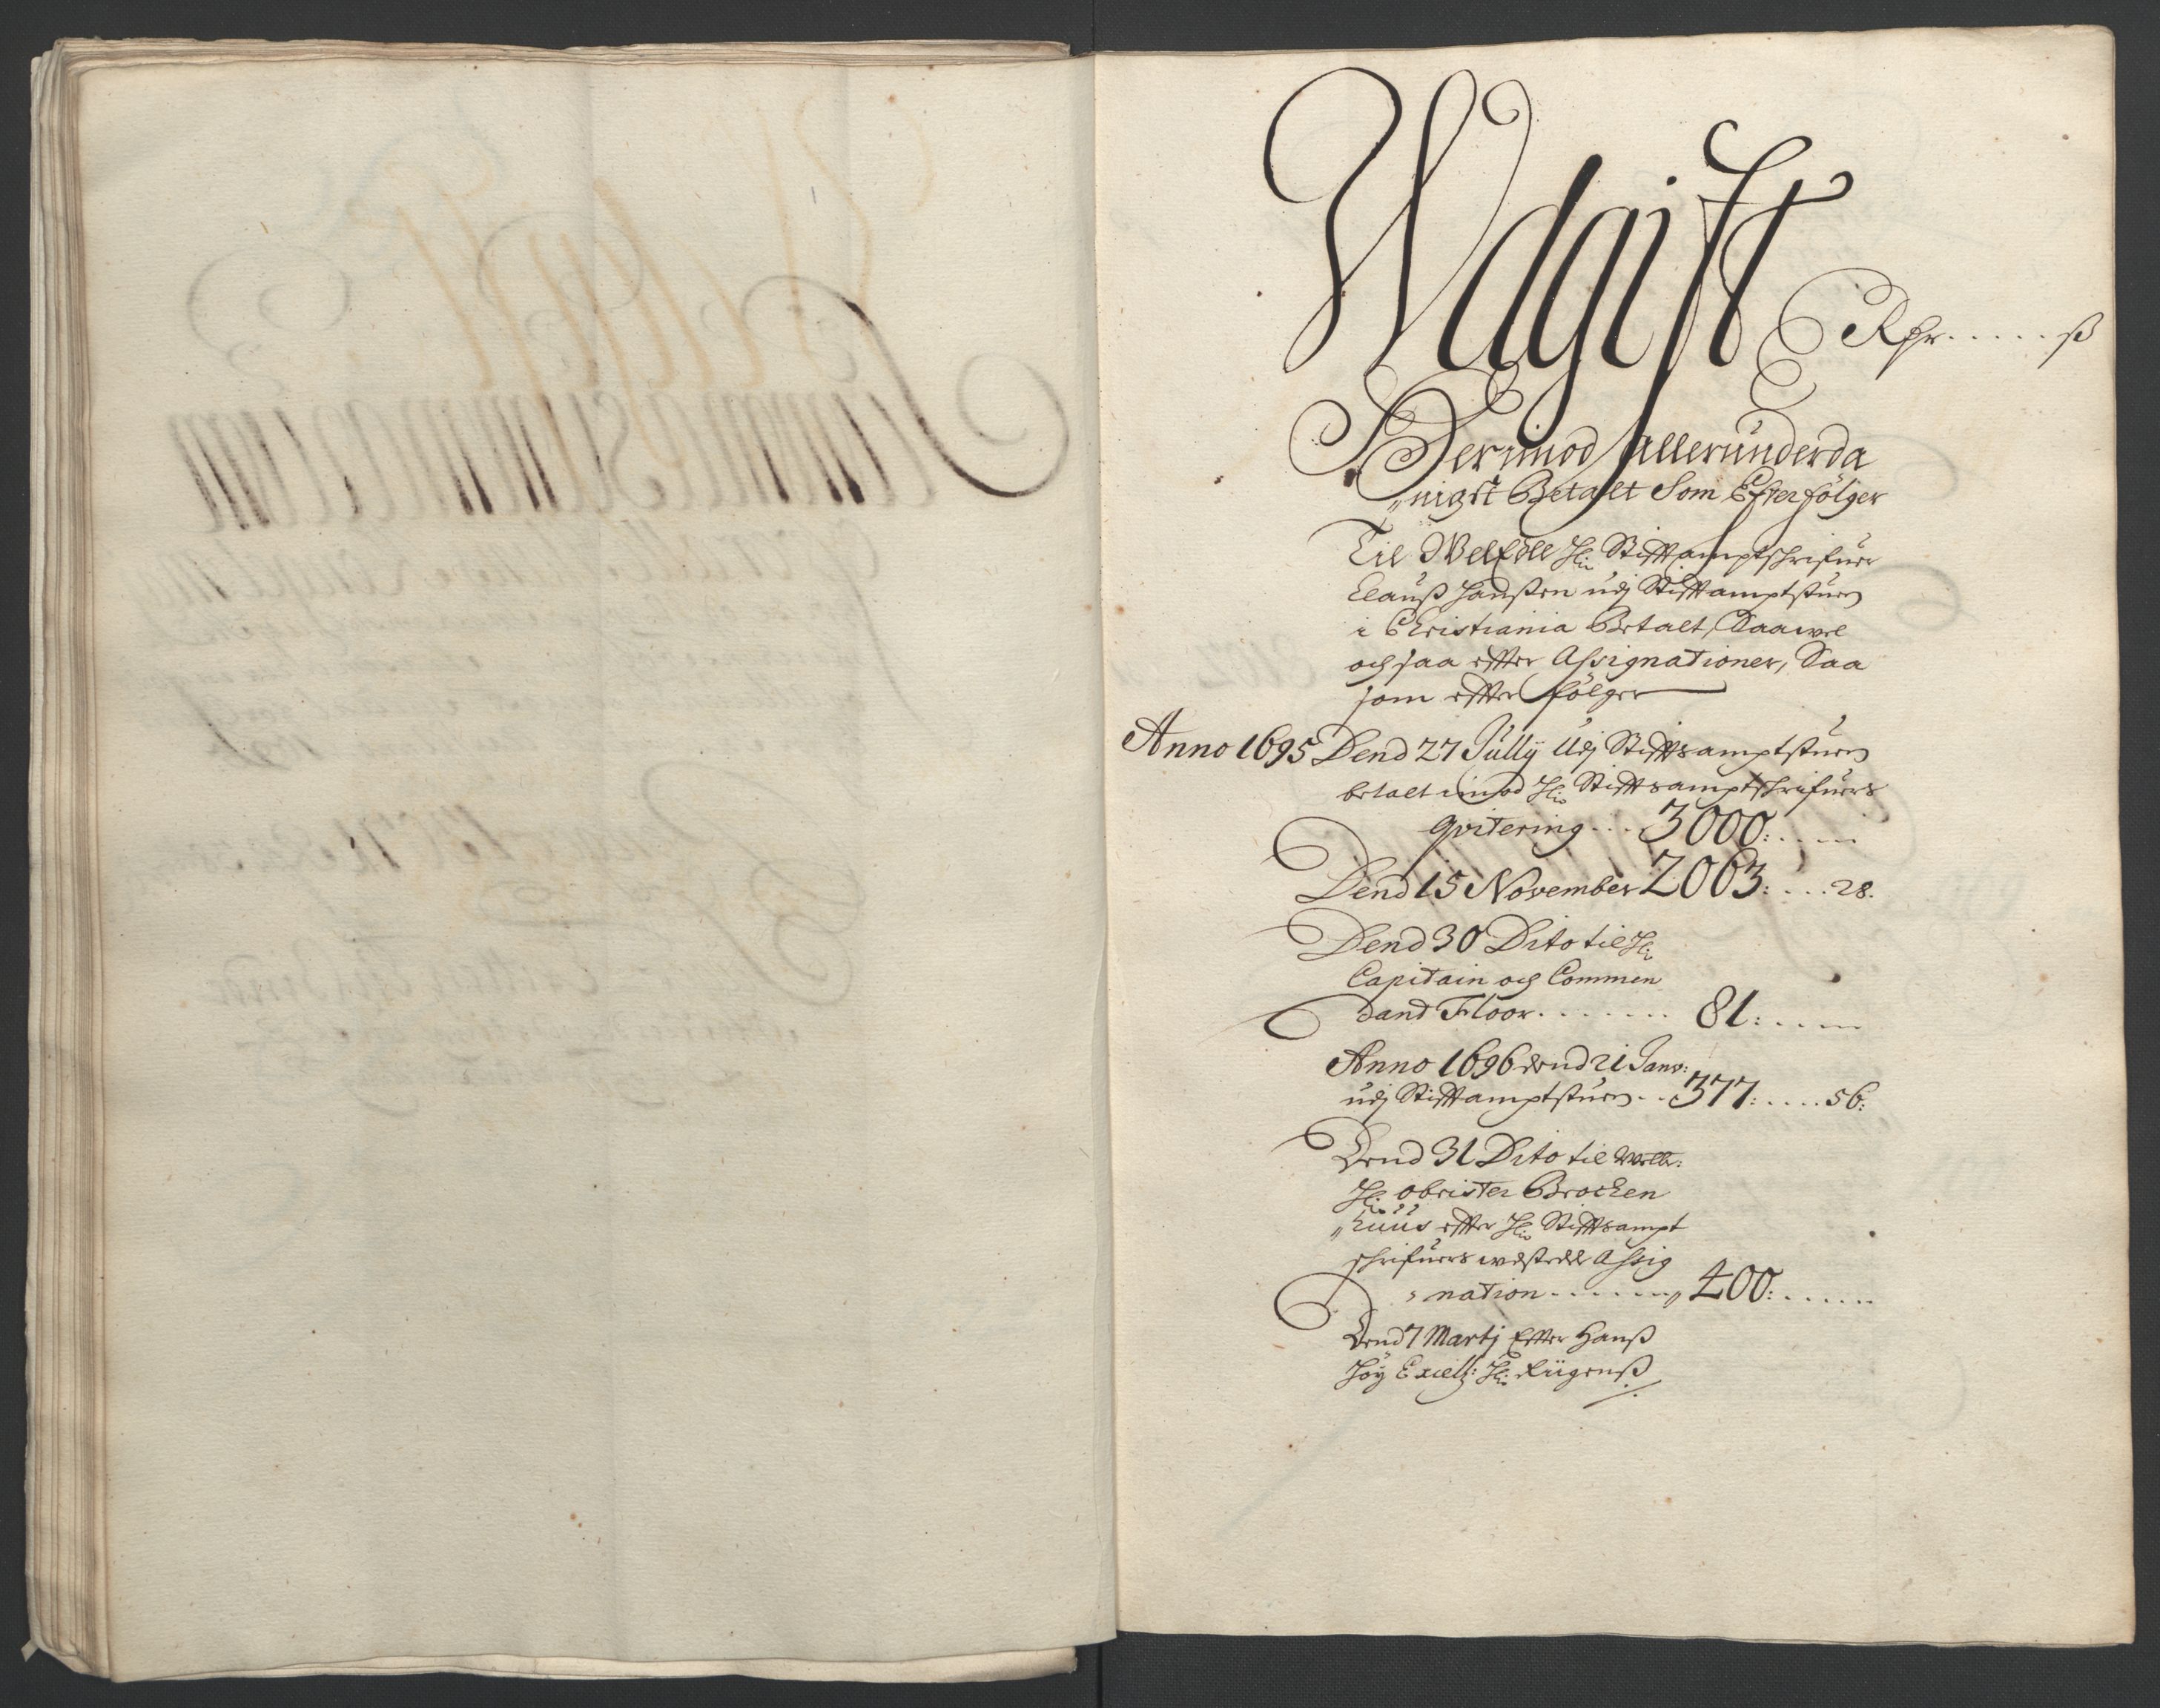 Wdgift Rhr ..... ß
Derimod Allerunderda
„nigst Betalt Som Efter følger
Til WelEdle Hr: Stifftamptschrifuer
Clauß Hanßen udj Stifftamptstuen
i Christiania Betalt, Saa wel
och saa effter Assignationer, Saa
som effter følger
Anno 1695 Dend 27 Jully Udj Stifftsamptstuen
betalt imod Hr: Stifftsamptschrifuers
Qvitering ... 3000: .....
Dend 15 November 2063: .... 28.
Dend 30 Dito til Hr
Capitain och Commen
dand Floor ....... 81: .....
Anno 1696 dend 21 Janv:
udj Stifftamptstuen .. 377: .... 56:
Dend 31 Dito til Welb:
Hr: Obrister Brocken
„huus effter Hr: Stifftsampt
schrifuers Assig
nation ....... 400: ......
Dend 7 Martj Effter Hanß
Höy Excell: Hr: